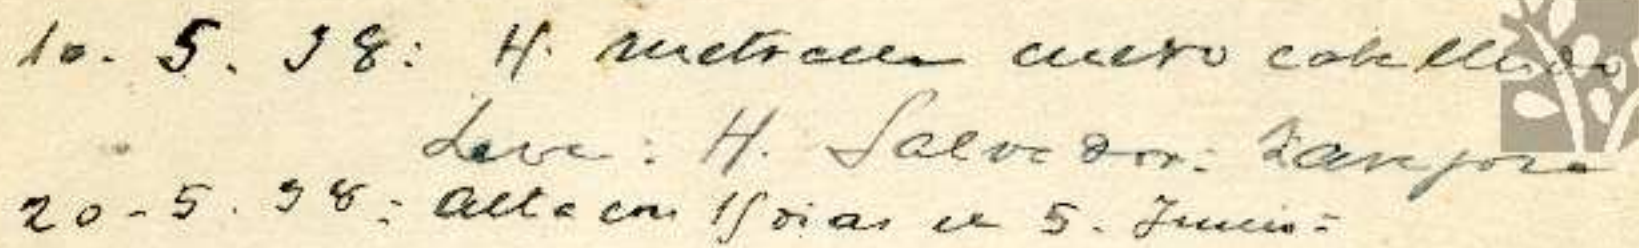 10. 5. 38: H. metralla cuero cabelludo
Leve: H. Salvador: Zaragoza
20-5. 38: Alta con 15 dias el 5. Junio: